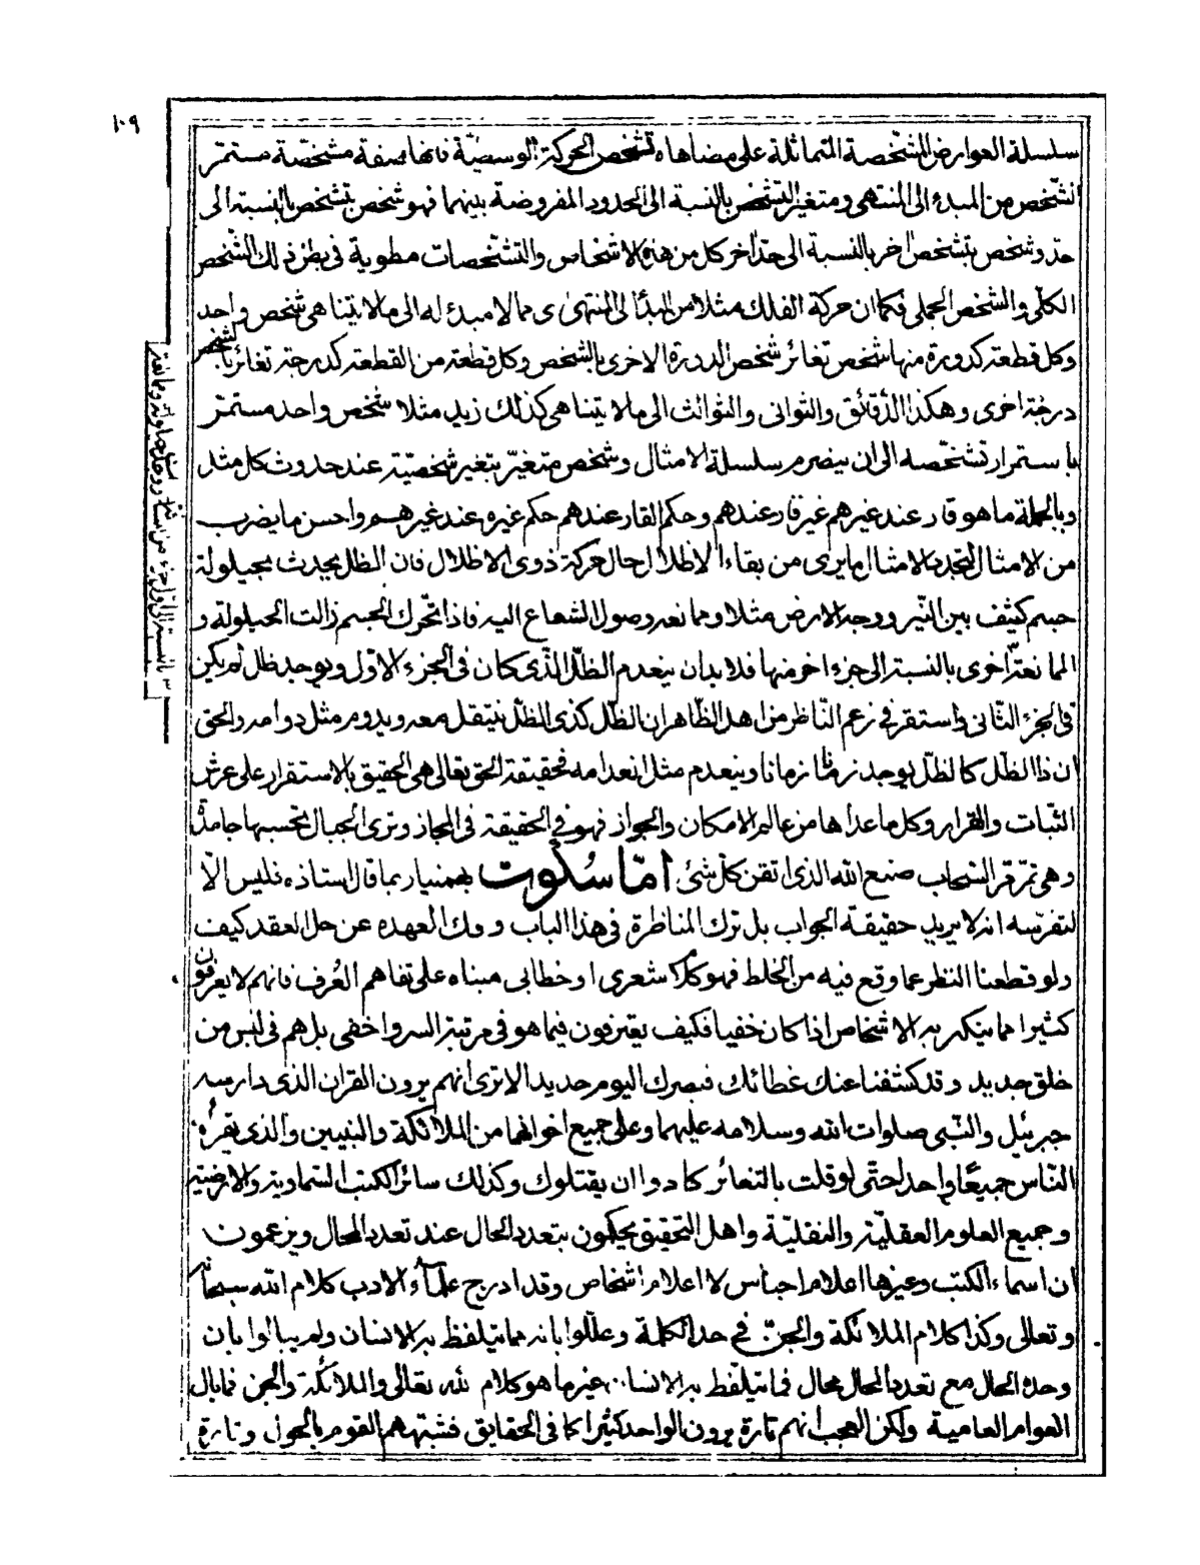 ١٠٩
سلسلة العوارض المشخصة المتماثلة على مضاهاة تشخص الحركة الوسطية فانها صفة مشخصة مستمر
التشخص من المبدء الى المنتهى ومتغير التشخص بالنسبة الى الحدود المفروضة بينهما فهو شخص بتشخص بالنسبة الى
حد وشخص بتشخص اخر بالنسبة الى حد اخر كل من هذه الاشخاص والتشخصات مطوية في بطن ذلك الشخص
الكلى والشخص الجملى فكما ان حركة الفلك مثلا من المبدأ الى المنتهى اى مما لا مبدء له الى ما لا يتناهى شخص واحد
وكل قطعة كدورة منها شخص تغائر شخص الدورة الاخرى بالشخص وكل قطعة من القطعة كدرجة تغائر بالشخص
درجة اخرى وهكذا الدقائق والثوانى والثوالث الى ما لا يتناهى كذلك زيد مثلا شخص واحد مستمر
باستمرار تشخصه الى ان ينصرم سلسلة الامثال وشخص متغير بتغير شخصيته عند حدوث كل مثل
وبالجملة ما هو قار عند غيرهم غير قار عندهم وحكم القار عندهم حكم غيره عند غيرهم واحسن ما يضرب
من الامثال لتجدد الامثال ما يرى من بقاء الاظلال حال حركة ذوى الاظلال فان الظل يحدث بحيلولة
جسم كثيف بين النير ووجه الارض مثلا وممانعه وصول الشعاع اليه فاذا تحرك الجسم زالت الحيلولة و
الممانعة اخرى بالنسبة الى جزء اخر منها فلا بد ان ينعدم الظل الذى كان فى الجزء الاول ويوجد ظل لم يكن
فى الجزء الثانى واستقر فى زعم الناظر من اهل الظاهر ان الظل كذى الظل ينتقل معه ويدوم مثل دوامه والحق
ان ذا الظل كالظل يوجد زمانا زمانا وينعدم مثل انعدامه فحقيقة الحق تعالى هى الحقيق بالاستقرار على عرش
الثبات والقرار وكل ما عداها من عالم الامكان والجواز فهو فى الحقيقة فى المجاز وترى الجبال تحسبها جامدة
وهى تمر مر السحاب صنع الله الذى اتقن كل شئ اما سكوت بهمنيار بما قال استاذه فليس الا
لتفرسه انه لا يريد حقيقة الجواب بل ترك المناظرة فى هذا الباب وفك العهده عن حل العقد كيف
ولو قطعنا النظر عما وقع فيه من الخلط فهو كلام شعرى او خطابى مبناه على تفاهم العرف فانهم لا يعرفون
كثيرا مما يتكرر به الاشخاص اذا كان خفيا فكيف يعترفون فيما هو فى مرتبة السر واخفى بل هم فى لبس من
خلق جديد وقد كشفنا عنك غطائك فبصرك اليوم حديد الا ترى انهم يرون القران الذى دارسه
جبرئيل والنبى صلوات الله وسلامه عليهما وعلى جميع اخوانهما من الملائكة والنبيين والذى يقرأه
الناس جميعا واحدا حتى لو قلت بالتغائر كادوا ان يقتلوك وكذلك سائر الكتب السماوية والارضية
وجميع العلوم العقلية والنقلية واهل التحقيق يحكمون بتعدد الحال عند تعدد المحال ويزعمون
ان اسماء الكتب وغيرها اعلام اجناس لا اعلام اشخاص وقد ادرج علماء الادب كلام الله سبحانه
وتعالى وكذا كلام الملائكة والجن فى حد الكلمة وعللوا بانه مما يتلفظ به الانسان ولم يبالوا بان
وحدة الحال مع تعدد المحال محال فما يتلفظ به الانسان غير ما هو كلام لله تعالى والملائكة والجن فما بال
العوام العامية ولكن العجب انهم تارة يرون الواحد كثيرا كما فى الحقايق فشبههم القوم بالحول وتارة
بالنسبة الى الاول جزء من